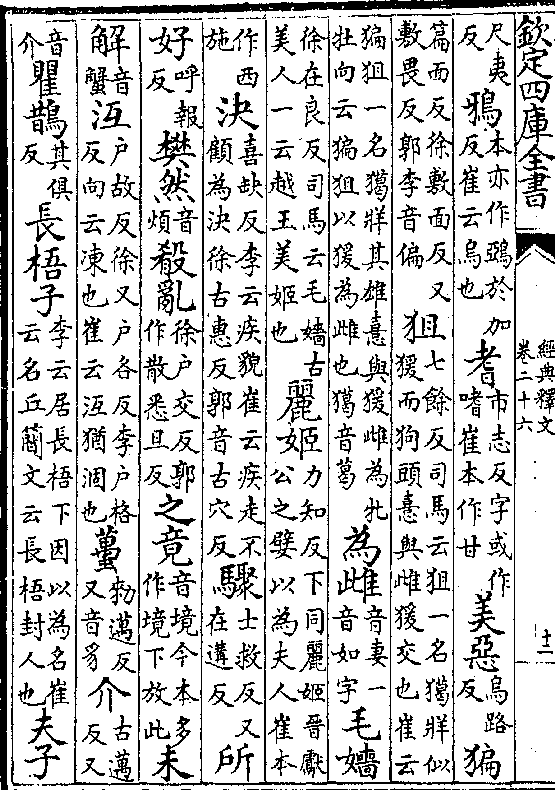 欽定四庫全書
經典釋文
卷二十六
十二
尺夷反鴉本亦作鵶於加反崔云烏也耆市志反字或作嗜崔本作甘美惡烏路反猵
篇而反徐敷面反又敷畏反郭李音偏狙七餘反司馬云狙一名獦牂似猨而狗頭憙與雌猨交也崔云
猵狙一名獦牂其雄憙與猨雌為牝牡向云猵狙以猨為雌也獦音葛為雌音妻一音如字毛嬙
徐在良反司馬云毛嬙古美人一云越王美姬也麗姬力知反下同麗姬晉獻公之嬖以為夫人崔本
作西施決喜缺反李云疾貌崔云疾走不顧為決徐古惠反郭音古穴反驟士救反又在遘反所
好呼報反樊然音煩殽亂徐戶交反郭作散悉旦反之竟音境今本多作境下放此未
解音蟹沍戶故反徐又戶各反李戶格反向云凍也崔云沍猶涸也蠆勑邁反又音豸介古邁反又
音介瞿鵲其俱反長梧子李云居長梧下因以為名崔云名丘簡文云長梧封人也夫子